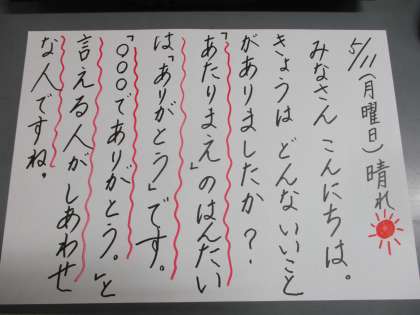 5/11(月曜日)晴れ
みなさん こんにちは。
きょうは どんないいこと
がありましたか?
「あたりまえ」のはんたい
は「ありがとう」です。
「○○○でありがとう。」と
言える人がしあわせ
な人ですね。